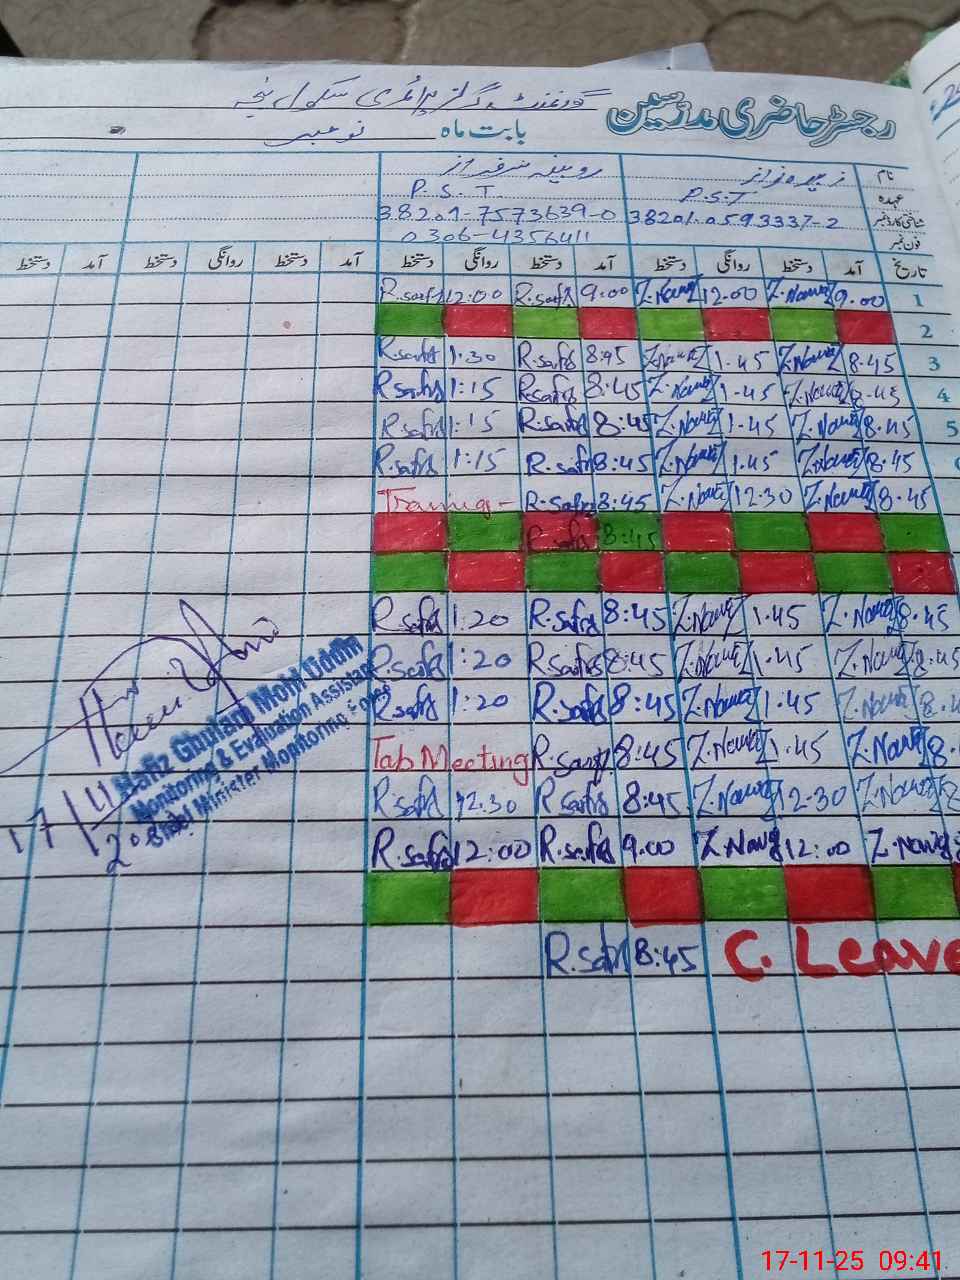 رجسٹر حاضری مدرسین گورنمنٹ گرلز پرائمری سکول
بابت ماہ نومبر
نام روبینہ سرفراز
عہدہ P.S.T P.S.T
شناختی کارڈ نمبر 38201-0593337-2 38201-7573639-0
فون نمبر 0306-4356411
تاریخ آمد دستخط روانگی دستخط آمد دستخط روانگی دستخط آمد دستخط روانگی دستخط آمد دستخط
R.safrs 12:00 R.safrs 9:00 Z.Nawaz 12:00 Z.Nawaz 9:00 1
2
R.safrs 1:30 R.safrs 8:45 Z.Nawaz 1:45 Z.Nawaz 8:45 3
R.safrs 1:15 R.safrs 8:45 Z.Nawaz 1:45 Z.Nawaz 8:45 4
R.safrs 1:15 R.safrs 8:45 Z.Nawaz 1:45 Z.Nawaz 8:45 5
R.safrs 1:15 R.safrs 8:45 Z.Nawaz 1:45 Z.Nawaz 8:45
Training - R.Safrs 8:45 Z.Nawaz 12:30 Z.Nawaz 8:45
R.safrs 8:45
R.safrs 1:20 R.safrs 8:45 Z.Nawaz 1:45 Z.Nawaz 8:45
R.safrs 1:20 R.safrs 8:45 Z.Nawaz 1:45 Z.Nawaz 8:45
R.safrs 1:20 R.safrs 8:45 Z.Nawaz 1:45 Z.Nawaz
Tab Meeting R.safrs 8:45 Z.Nawaz 1:45 Z.Nawaz
R.safrs 12:30 R.safrs 8:45 Z.Nawaz 12:30 Z.Nawaz
R.safrs 12:00 R.safrs 9:00 Z.Nawaz 12:00 Z.Nawaz
R.safrs 8:45 C. Leave
Hafiz Ghulam Mohi Uddin
Monitoring & Evaluation Assistant
Chief Minister Monitoring Force
17/11/20
17-11-25 09:41